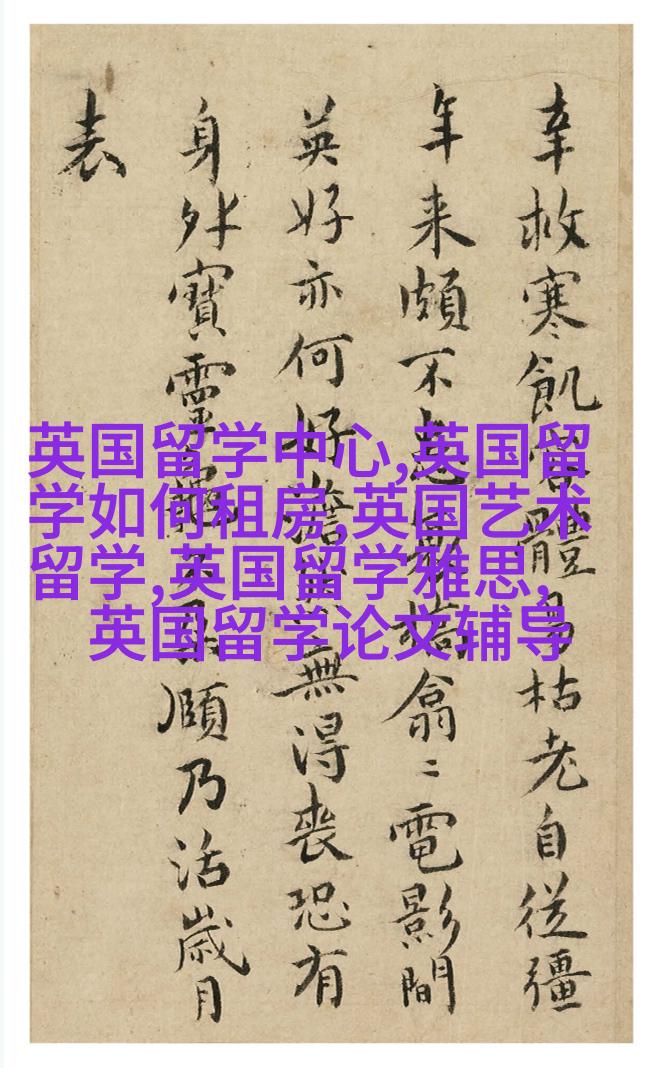 幸救寒飢體枯老自從彊
年来頗不翕〻電影間
英好亦何好無得喪恐有
身外寶靈龜頤乃活歲月
表
英国留学中心,英国留
学如何租房,英国艺术
留学,英国留学雅思,
英国留学论文辅导